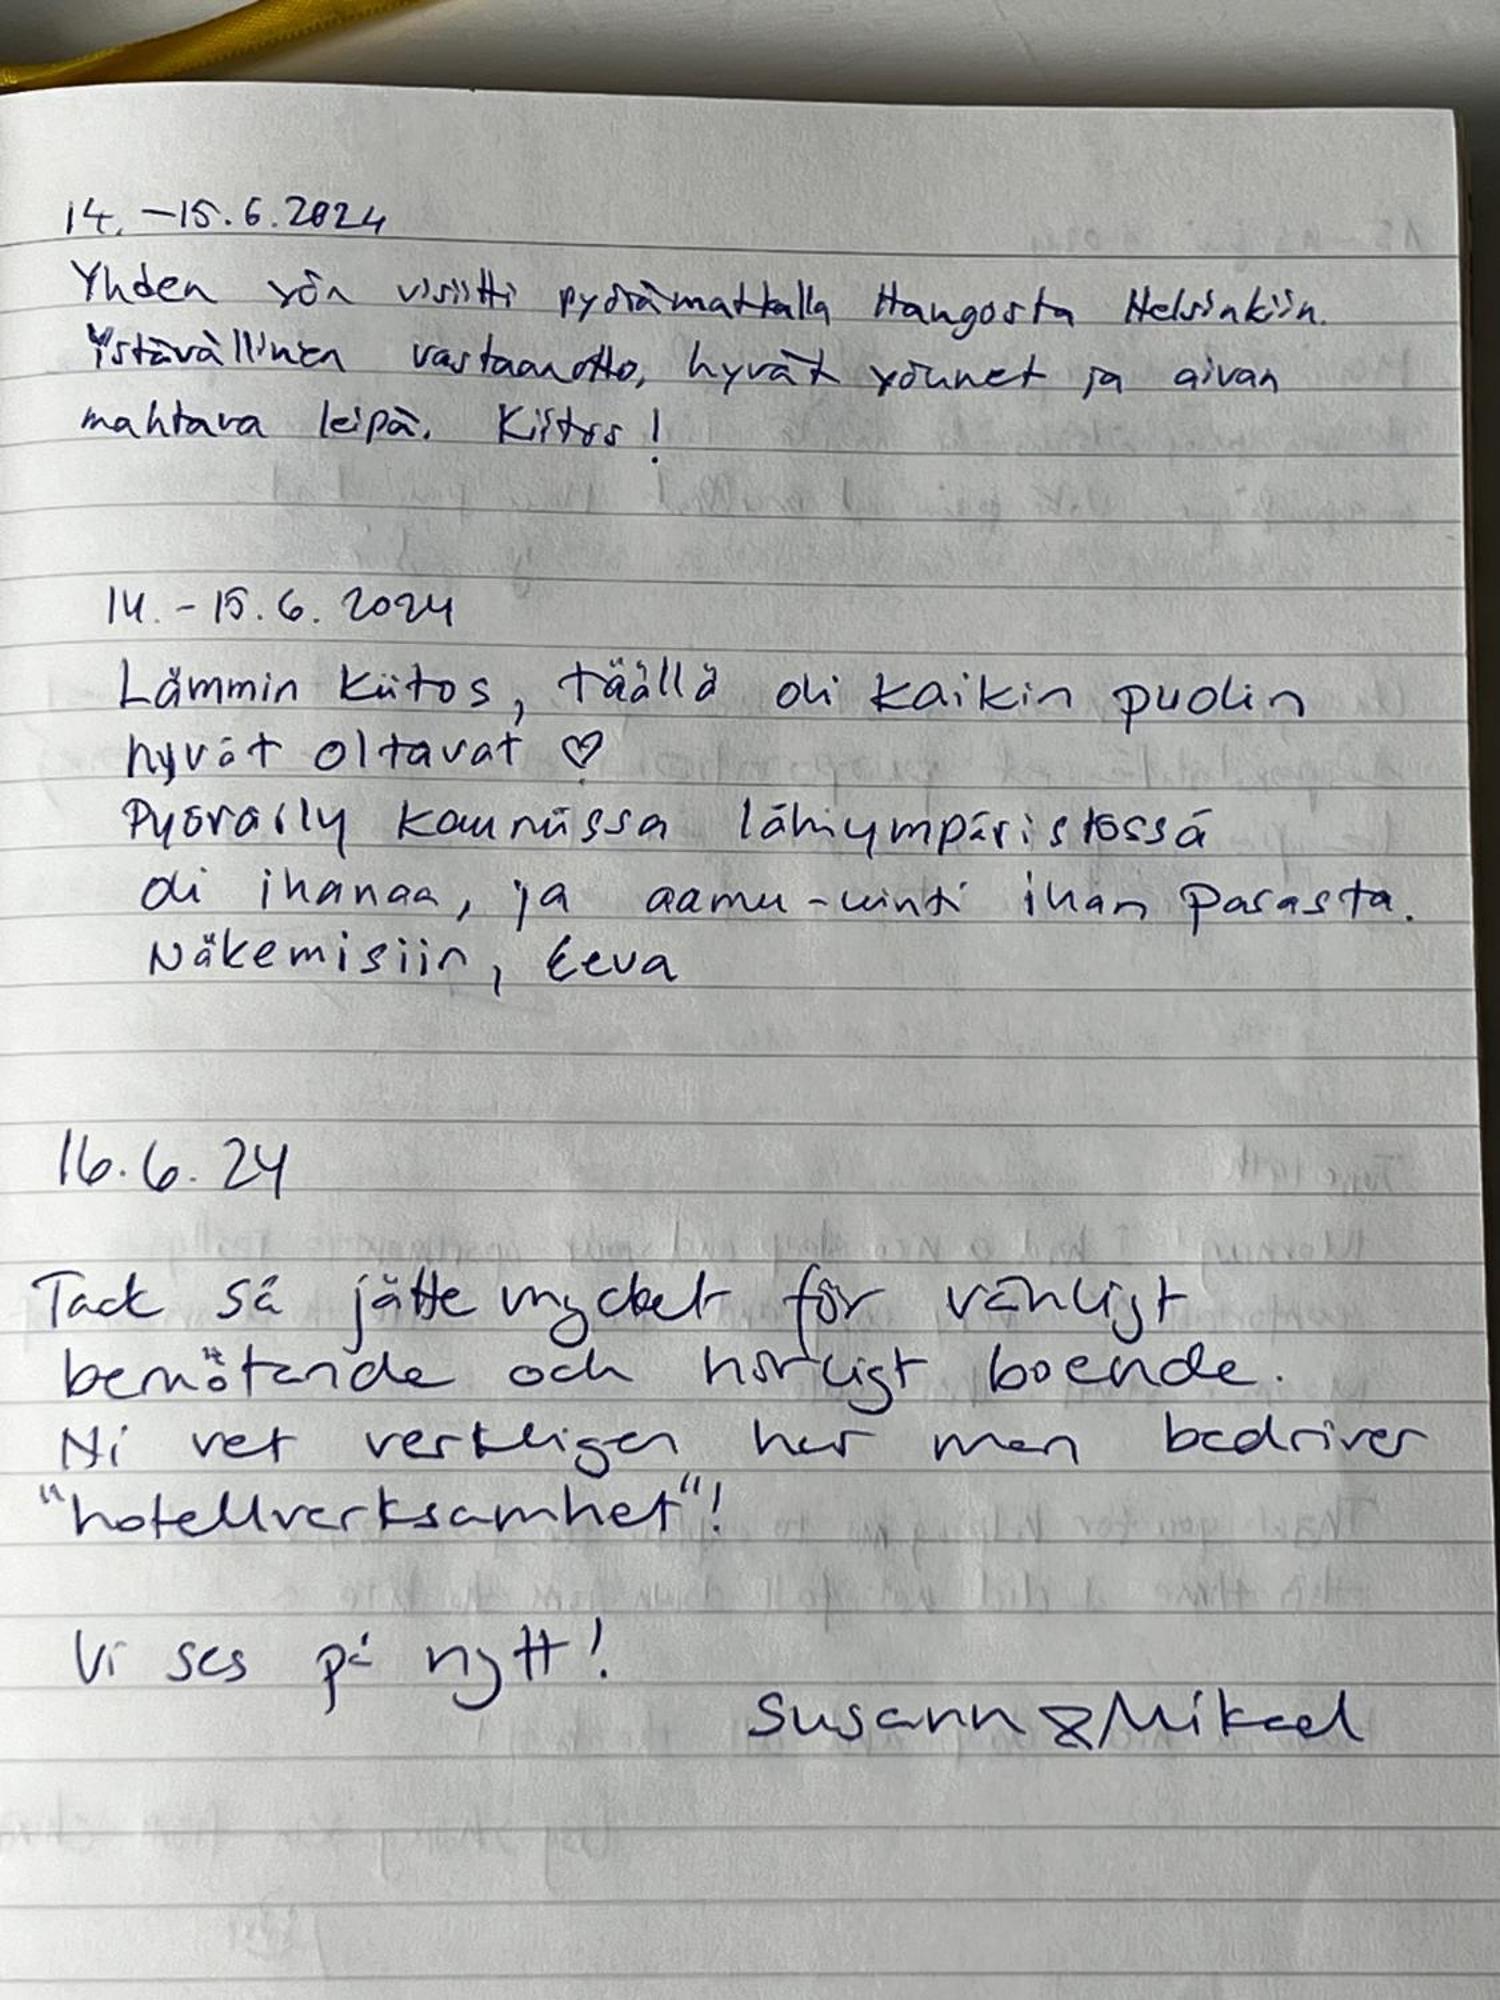 14.-15.6.2024
Yhden yön visiitti pyörämatkalla Hangosta Helsinkiin.
Ystävällinen vastaanotto, hyvät yöunet ja aivan
mahtava leipä. Kiitos!
14.-15.6.2024
Lämmin kiitos, täällä oli kaikin puolin
hyvät oltavat ♡
Pyöräily kauniissa lähiympäristössä
oli ihanaa, ja aamu-uinti ihan parasta.
Näkemisiin, Eeva
16.6.24
Tack så jätte mycket för vänligt
bemötande och härligt boende.
Ni vet verkligen hur man bedriver
"hotellverksamhet"!
Vi ses på nytt!
Susann & Mikael